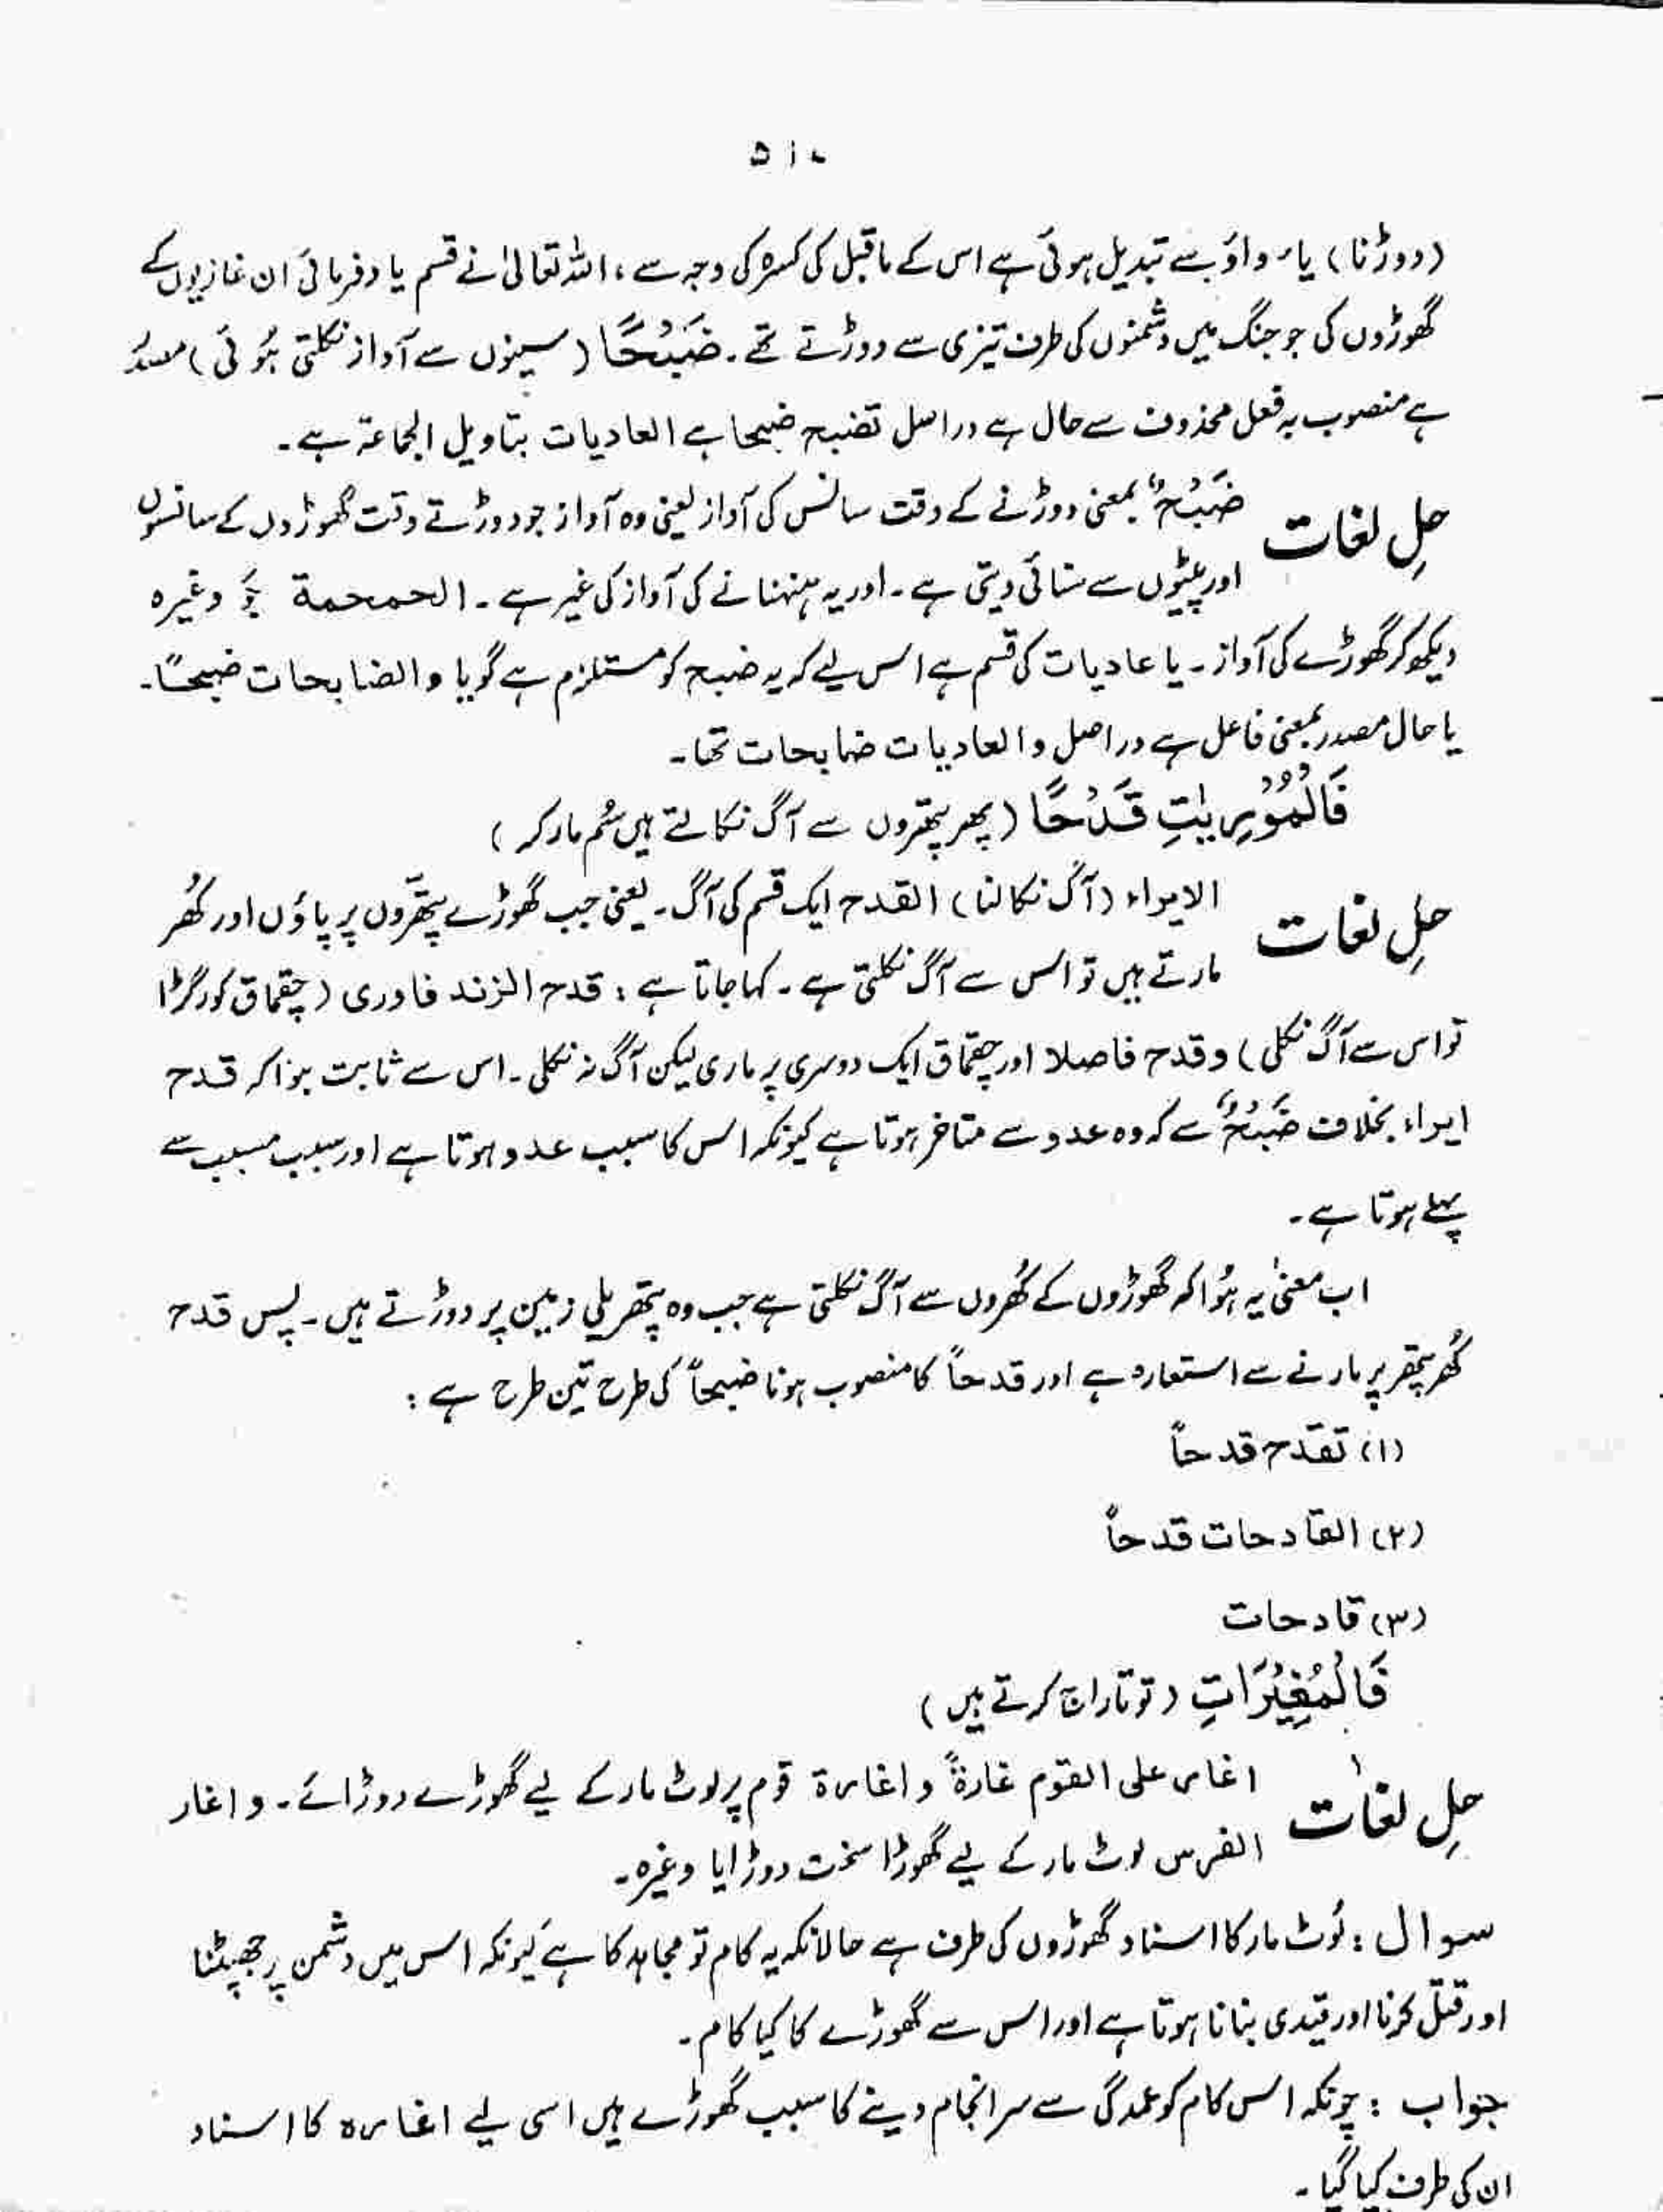 ۵۱۰
(دوڑنا) یاء واؤ سے تبدیل ہوئی ہے اس کے ماقبل کی کسرہ کی وجہ سے، اللہ تعالیٰ نے قسم یاد فرمائی ان غازیوں کے
گھوڑوں کی جو جنگ میں دشمنوں کی طرف تیزی سے دوڑتے تھے۔ ضَبْحًا (سینوں سے آواز نکلتی ہُوئی) مصدر
ہے منصوب بہ فعل محذوف سے حال ہے دراصل تضبح ضبحا ہے العادیات بتاویل الجماعۃ ہے۔
حلِ لغات
ضَبْحٌ بمعنی دوڑنے کے وقت سانس کی آواز یعنی وہ آواز جو دوڑتے وقت گھوڑوں کے سانسوں
اور پیٹوں سے سنائی دیتی ہے۔ اور یہ ہنہنانے کی آواز کی غیر ہے۔ الحمحمة جَو وغیرہ
دیکھ کر گھوڑے کی آواز۔ یا عادیات کی قسم ہے اس لیے کہ یہ ضبح کو مستلزم ہے گویا والضابحات ضبحًا۔
یا حال مصدر بمعنی فاعل ہے دراصل والعادیات ضابحات تھا۔
فَالْمُوْرِیٰتِ قَدْحًا (پھر پتھروں سے آگ نکالتے ہیں سُم مار کر)
حلِ لغات
الایراء (آگ نکالنا) القدح ایک قسم کی آگ۔ یعنی جب گھوڑے پتھّروں پر پاؤں اور کھُر
مارتے ہیں تو اس سے آگ نکلتی ہے۔ کہا جاتا ہے: قدح الزند فاوری (چقماق کو رگڑا
تو اس سے آگ نکلی) وقدح فاصلا اور چقماق ایک دوسری پر ماری لیکن آگ نہ نکلی۔ اس سے ثابت ہوا کہ قدح
ایراء بخلاف ضَبْحٌ کے کہ وہ عدو سے متاخر ہوتا ہے کیونکہ اس کا سبب عدو ہوتا ہے اور سبب مسبب سے
پہلے ہوتا ہے۔
اب معنیٰ یہ ہُوا کہ گھوڑوں کے کھُروں سے آگ نکلتی ہے جب وہ پتھریلی زمین پر دوڑتے ہیں۔ پس قدح
کھُر پتھر پر مارنے سے استعارہ ہے اور قدحاً کا منصوب ہونا ضبحاً کی طرح تین طرح ہے:
(۱) تقدح قدحاً
(۲) القادحات قدحاً
(۳) قادحات
فَالْمُغِیْرَاتِ (تو تاراج کرتے ہیں)
حلِ لغات
اغار علی القوم غارۃً واغارۃ قوم پر لوٹ مار کے لیے گھوڑے دوڑائے۔ و اغار
الفرس لوٹ مار کے لیے گھوڑا سخت دوڑایا وغیرہ۔
سوال: لُوٹ مار کا اسناد گھوڑوں کی طرف ہے حالانکہ یہ کام تو مجاہد کا ہے کیونکہ اس میں دشمن پر جھپٹنا
اور قتل کرنا اور قیدی بنانا ہوتا ہے اور اس سے گھوڑے کا کیا کام۔
جواب: چونکہ اس کام کو عمدگی سے سرانجام دینے کا سبب گھوڑے ہیں اسی لیے اغارہ کا اسناد
ان کی طرف کیا گیا۔